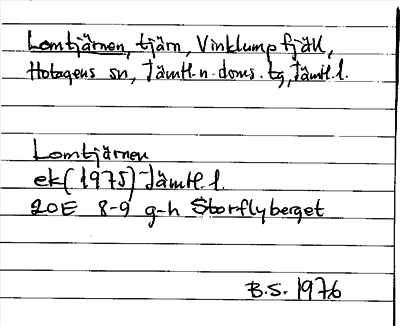 Lomtjärnen, tjärn, Vinklumpfjäll,
Hotagens sn, Jämtl. n. doms. tg, Jämtl. l.
Lomtjärnen
ek (1975) Jämtl. l.
20E 8-9 g-h Storflyberget
B.S. 1976